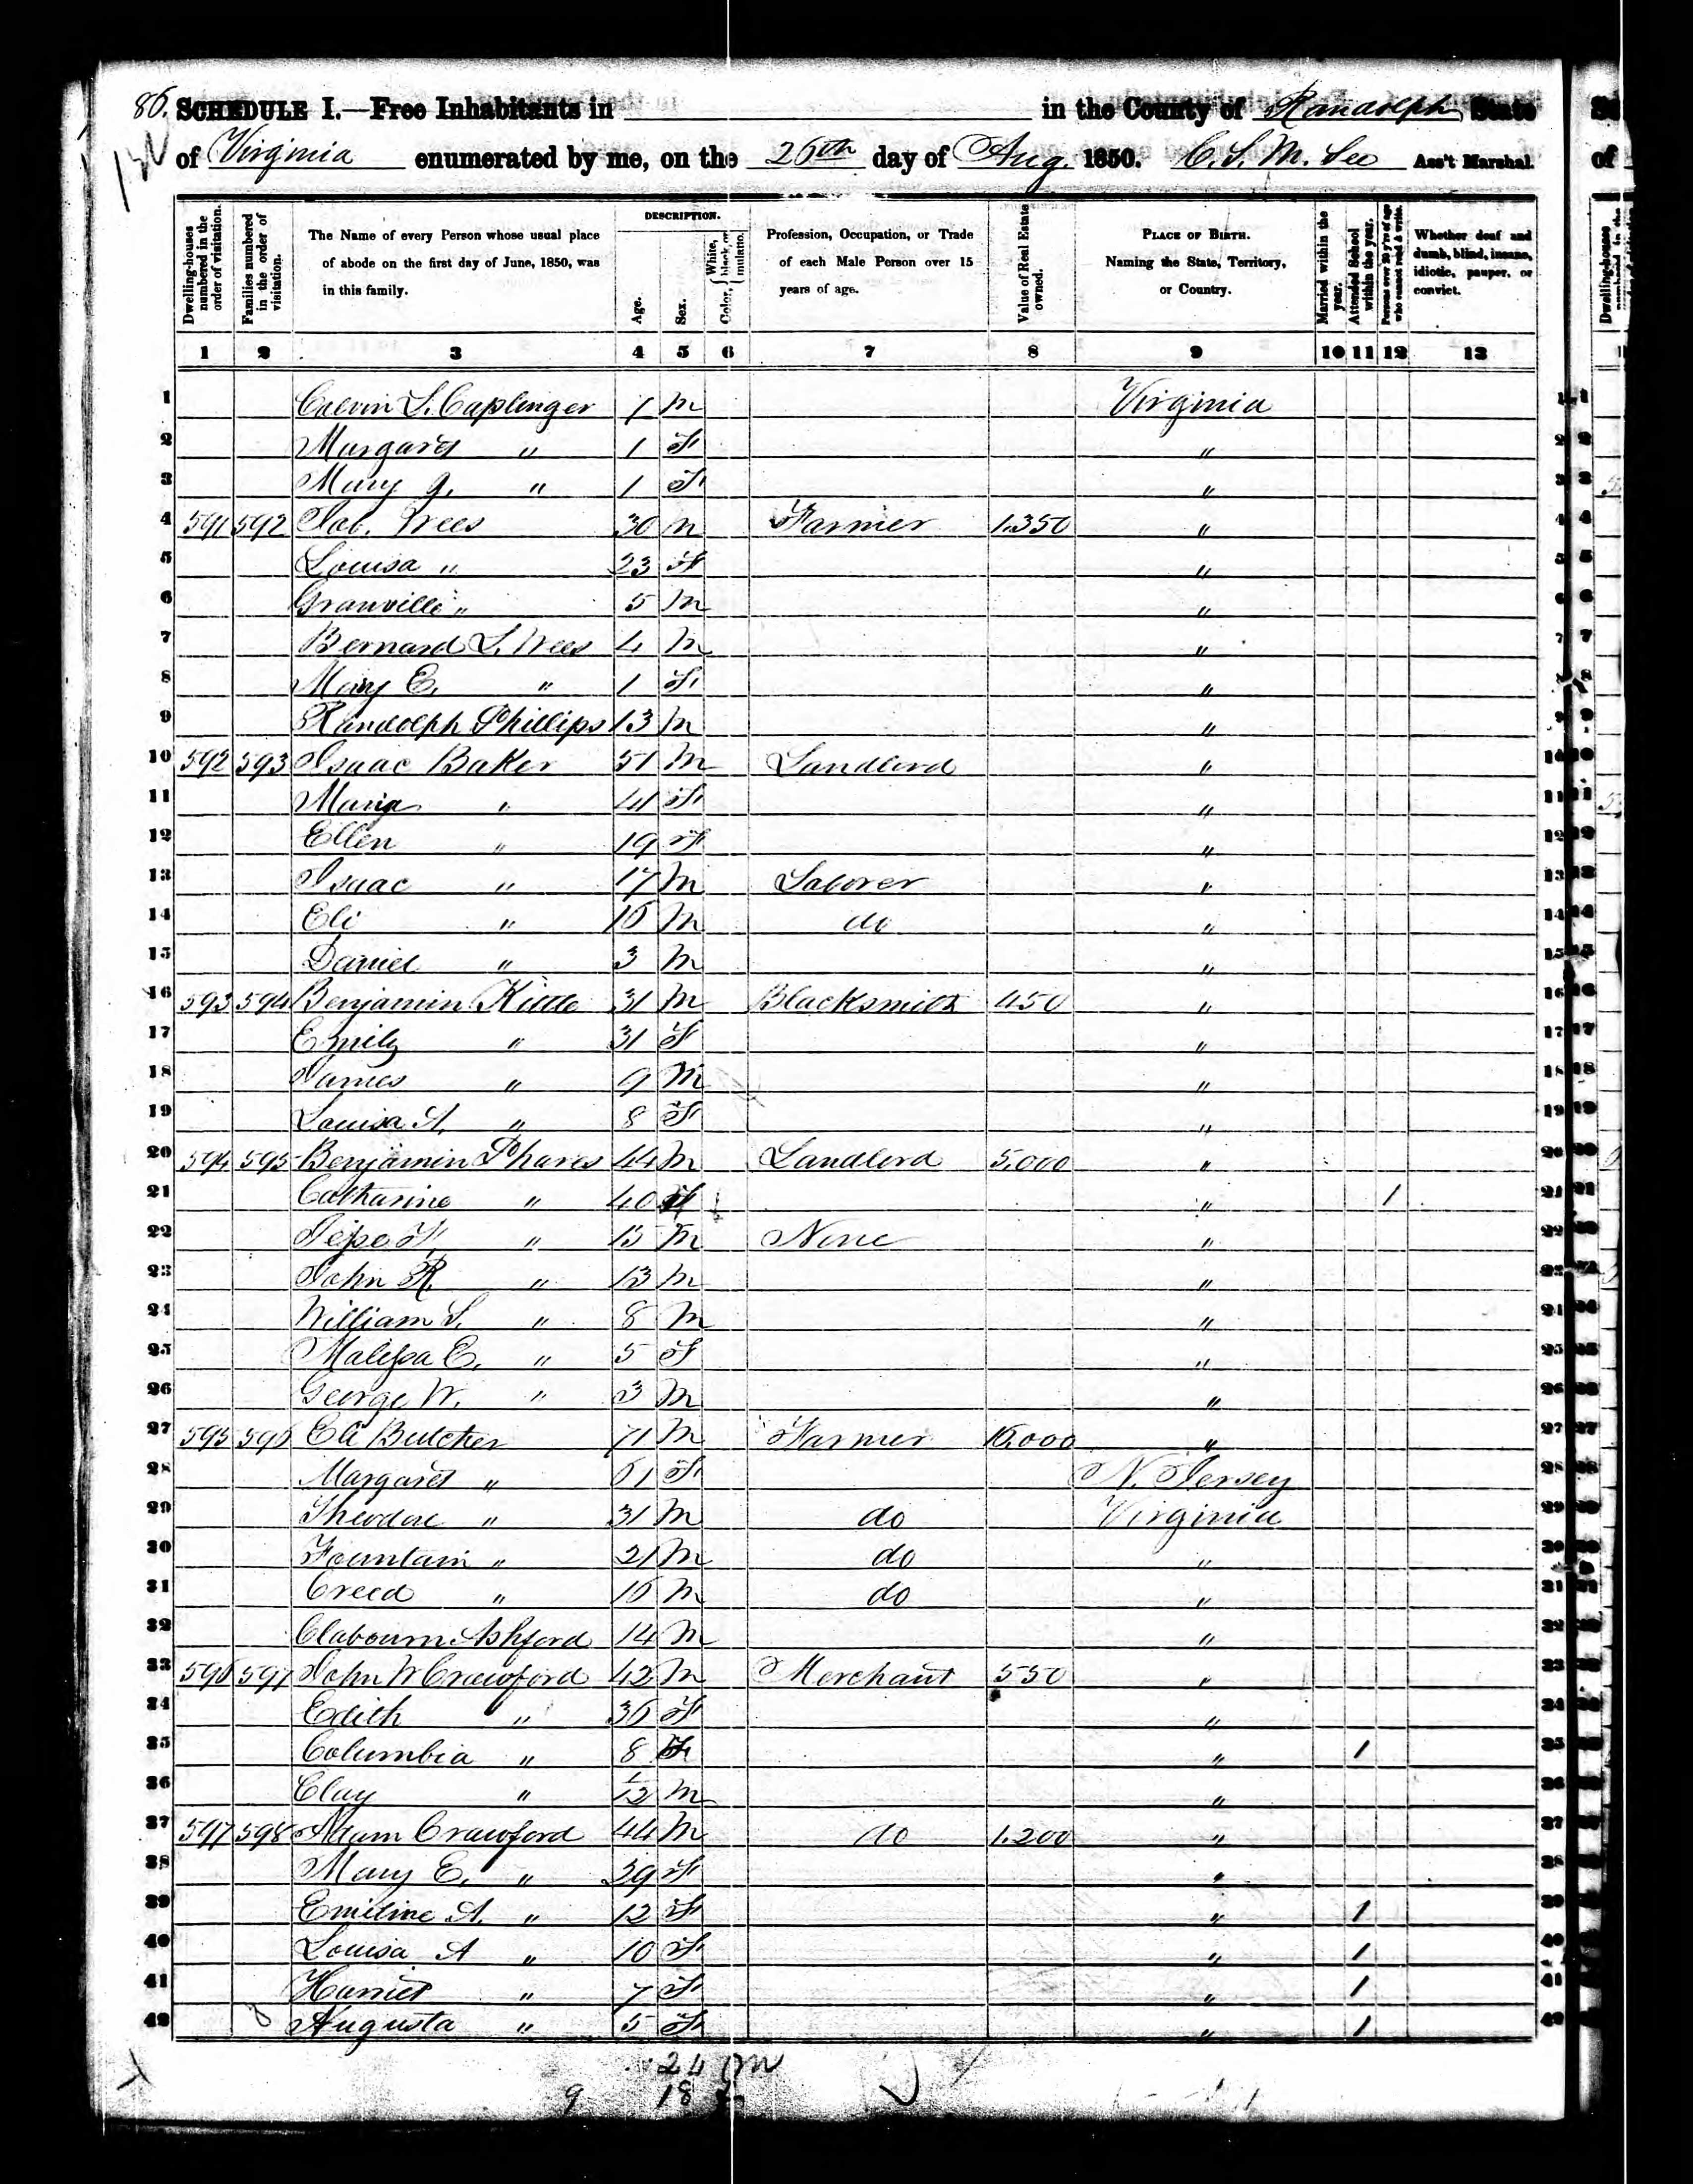 86. SCHEDULE I.—Free Inhabitants in in the County of Randolph State
of Virginia enumerated by me, on the 26th day of Aug. 1850. C. S. M. See Ass't Marshal.
Dwelling-houses numbered in the order of visitation.
Families numbered in the order of visitation.
The Name of every Person whose usual place of abode on the first day of June, 1850, was in this family.
DESCRIPTION.
Age.
Sex.
Color, White, black, or mulatto.
Profession, Occupation, or Trade of each Male Person over 15 years of age.
Value of Real Estate owned.
PLACE OF BIRTH. Naming the State, Territory, or Country.
Married within the year.
Attended School within the year.
Persons over 20 y'rs of age who cannot read & write.
Whether deaf and dumb, blind, insane, idiotic, pauper, or convict.
1 2 3 4 5 6 7 8 9 10 11 12 13
1 Calvin L. Caplinger 1 M Virginia 1
2 Margaret " 1 F " 2
3 Mary J. " 1 F " 3
4 591 592 Job. Wees 30 M Farmer 1.350 " 4
5 Louisa " 23 F " 5
6 Granville " 5 M " 6
7 Bernard L. Wees 4 M " 7
8 Mary E. " 1 F " 8
9 Randolph Phillips 13 M " 9
10 592 593 Isaac Baker 51 M Landlord " 10
11 Maria " 41 F " 11
12 Ellen " 19 F " 12
13 Isaac " 17 M Laborer " 13
14 Eli " 16 M do " 14
15 Daniel " 3 M " 15
16 593 594 Benjamin Kittle 31 M Blacksmith 450 " 16
17 Emily " 31 F " 17
18 James " 9 M " 18
19 Louisa A. " 8 F " 19
20 594 595 Benjamin Phares 44 M Landlord 5.000 " 20
21 Catharine " 40 F " 1 21
22 Jesse F. " 15 M None " 22
23 John R. " 13 M " 23
24 William S. " 8 M " 24
25 Malissa C. " 5 F " 25
26 George W. " 3 M " 26
27 595 596 Eli Butcher 71 M Farmer 16.000 " 27
28 Margaret " 61 F N. Jersey 28
29 Theodore " 31 M do Virginia 29
30 Fountain " 21 M do " 30
31 Creed " 16 M do " 31
32 Clabourn Ashford 14 M " 32
33 596 597 John W Crawford 42 M Merchant 550 " 33
34 Edith " 36 F " 34
35 Columbia " 8 F " 1 35
36 Clay " 1/12 M " 36
37 597 598 Adam Crawford 44 M do 1.200 " 37
38 Mary E. " 39 F " 38
39 Emiline A. " 12 F " 1 39
40 Louisa A " 10 F " 1 40
41 Harriet " 7 F " 1 41
42 Augusta " 5 F " 1 42
24 M
9 18 F